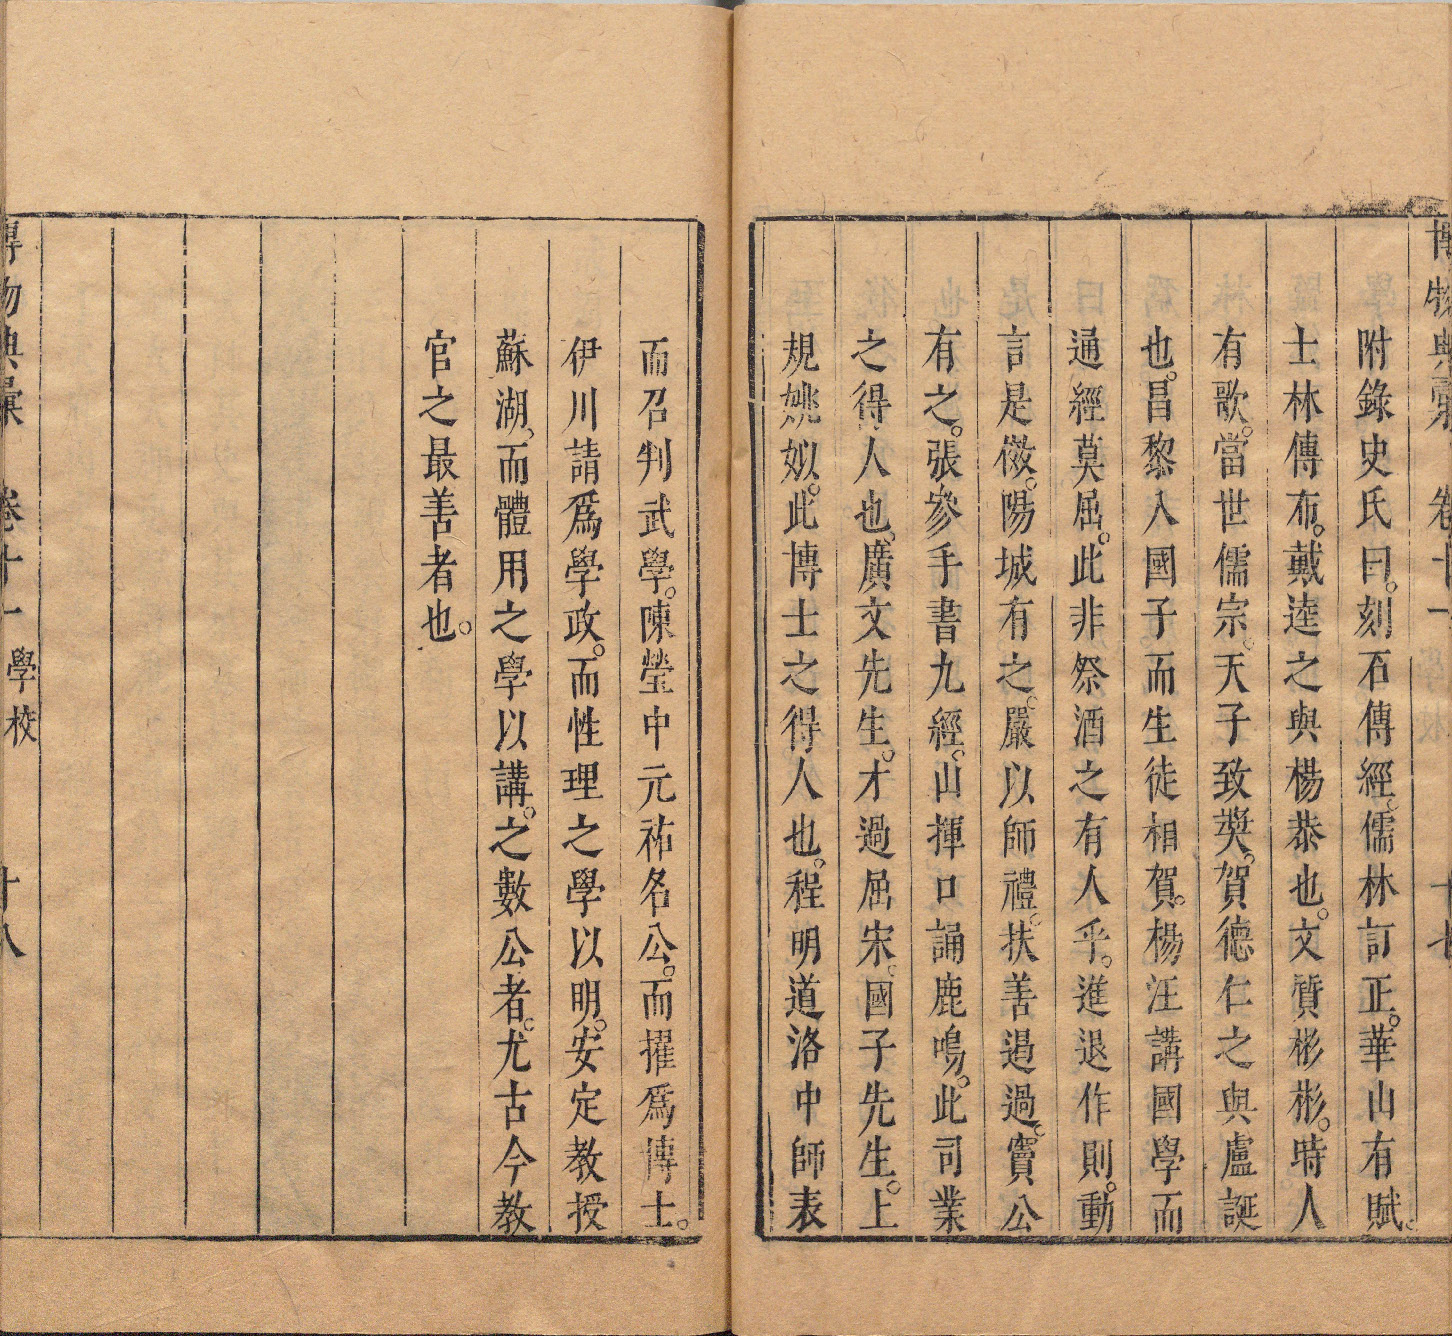 博物典彙 卷十一 十七
附錄史氏曰。刻石傳經、儒林訂正。華山有賦。
士林傳布。戴逵之與楊恭也。文質彬彬。時人
有歌。當世儒宗。天子致獎。賀德仁之與盧誕
也。昌黎入國子而生徒相賀。楊汪講國學而
通經莫屈。此非祭酒之有人乎。進退作則。動
言是儆。陽城有之。嚴以師禮。扶善遏過。竇公
有之。張參手書九經。山揮口誦鹿鳴。此司業
之得人也。廣文先生。才過屈宋。國子先生。上
規姚姒。此博士之得人也。程明道洛中師表
而召判武學。陳瑩中元祐名公。而擢爲博士。
伊川請爲學政。而性理之學以明。安定教授
蘇湖、而體用之學以講。之數公者。尤古今教
官之最善者也。
博物典彙 卷十一 學校 十八